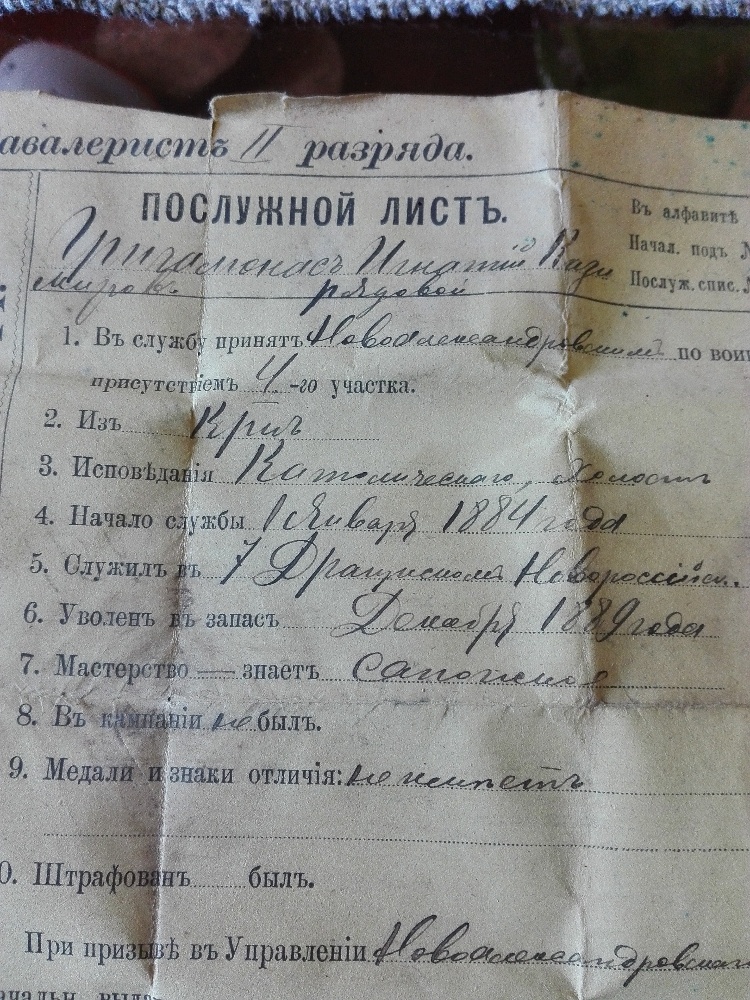 авалеристъ II разряда.
ПОСЛУЖНОЙ ЛИСТЪ.
Въ алфавитѣ
Начал. подъ №
Послуж. спис. №
Григамонасъ Игнатій Кази
мировъ рядовой
1. Въ службу принятъ Новоалександровскимъ по воин
присутствіемъ 4.-го участка.
2. Изъ Крпъ
3. Исповѣданія Католическаго, Холостъ
4. Начало службы 1 Января 1884 года
5. Служилъ въ 7 Драгунскомъ Новороссійск..
6. Уволенъ въ запасъ Декабря 1889 года
7. Мастерство — знаетъ сапожное
8. Въ кампаніи не былъ.
9. Медали и знаки отличія: не имѣетъ
0. Штрафованъ былъ.
При призывѣ въ Управленіи Новоалександровскаго